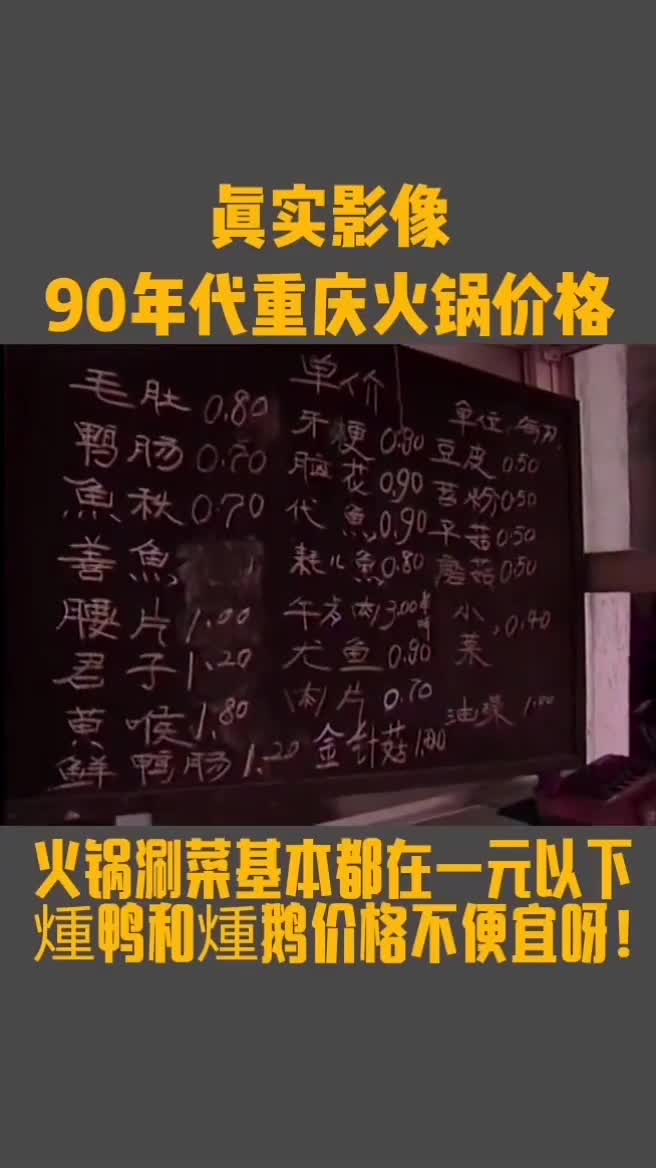 眞实影像
90年代重庆火锅价格
单价
毛肚 0.80
鸭肠 0.70
魚秋 0.70
善魚
腰片 1.00
君子 1.20
黄喉 1.80
鲜鸭肠 1.20
牙梗 0.80
脑花 0.90
代魚 0.90
耗儿魚 0.80
午方肉 3.00
尤鱼 0.90
肉片 0.70
金针菇 1.80
单位
豆皮 0.50
苕粉 0.50
平菇 0.50
磨菇 0.50
小菜 0.40
油碟 1.00
火锅涮菜基本都在一元以下
煄鸭和煄鹅价格不便宜呀！